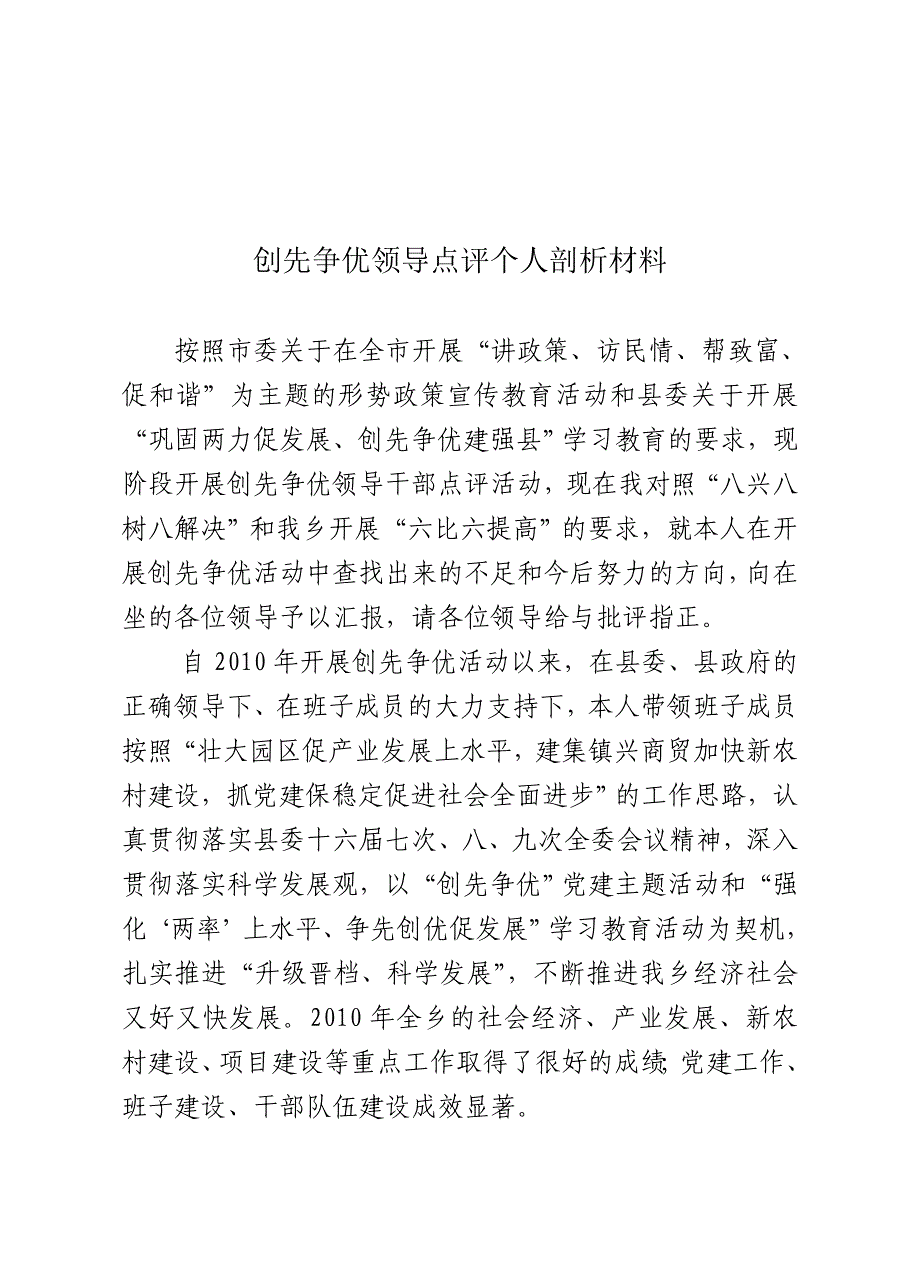 创先争优领导点评个人剖析材料
按照市委关于在全市开展“讲政策、访民情、帮致富、
促和谐”为主题的形势政策宣传教育活动和县委关于开展
“巩固两力促发展、创先争优建强县”学习教育的要求，现
阶段开展创先争优领导干部点评活动，现在我对照“八兴八
树八解决”和我乡开展“六比六提高”的要求，就本人在开
展创先争优活动中查找出来的不足和今后努力的方向，向在
坐的各位领导予以汇报，请各位领导给与批评指正。
自 2010 年开展创先争优活动以来，在县委、县政府的
正确领导下、在班子成员的大力支持下，本人带领班子成员
按照“壮大园区促产业发展上水平，建集镇兴商贸加快新农
村建设，抓党建保稳定促进社会全面进步”的工作思路，认
真贯彻落实县委十六届七次、八、九次全委会议精神，深入
贯彻落实科学发展观，以“创先争优”党建主题活动和“强
化‘两率’上水平、争先创优促发展”学习教育活动为契机，
扎实推进“升级晋档、科学发展”，不断推进我乡经济社会
又好又快发展。2010 年全乡的社会经济、产业发展、新农
村建设、项目建设等重点工作取得了很好的成绩；党建工作、
班子建设、干部队伍建设成效显著。